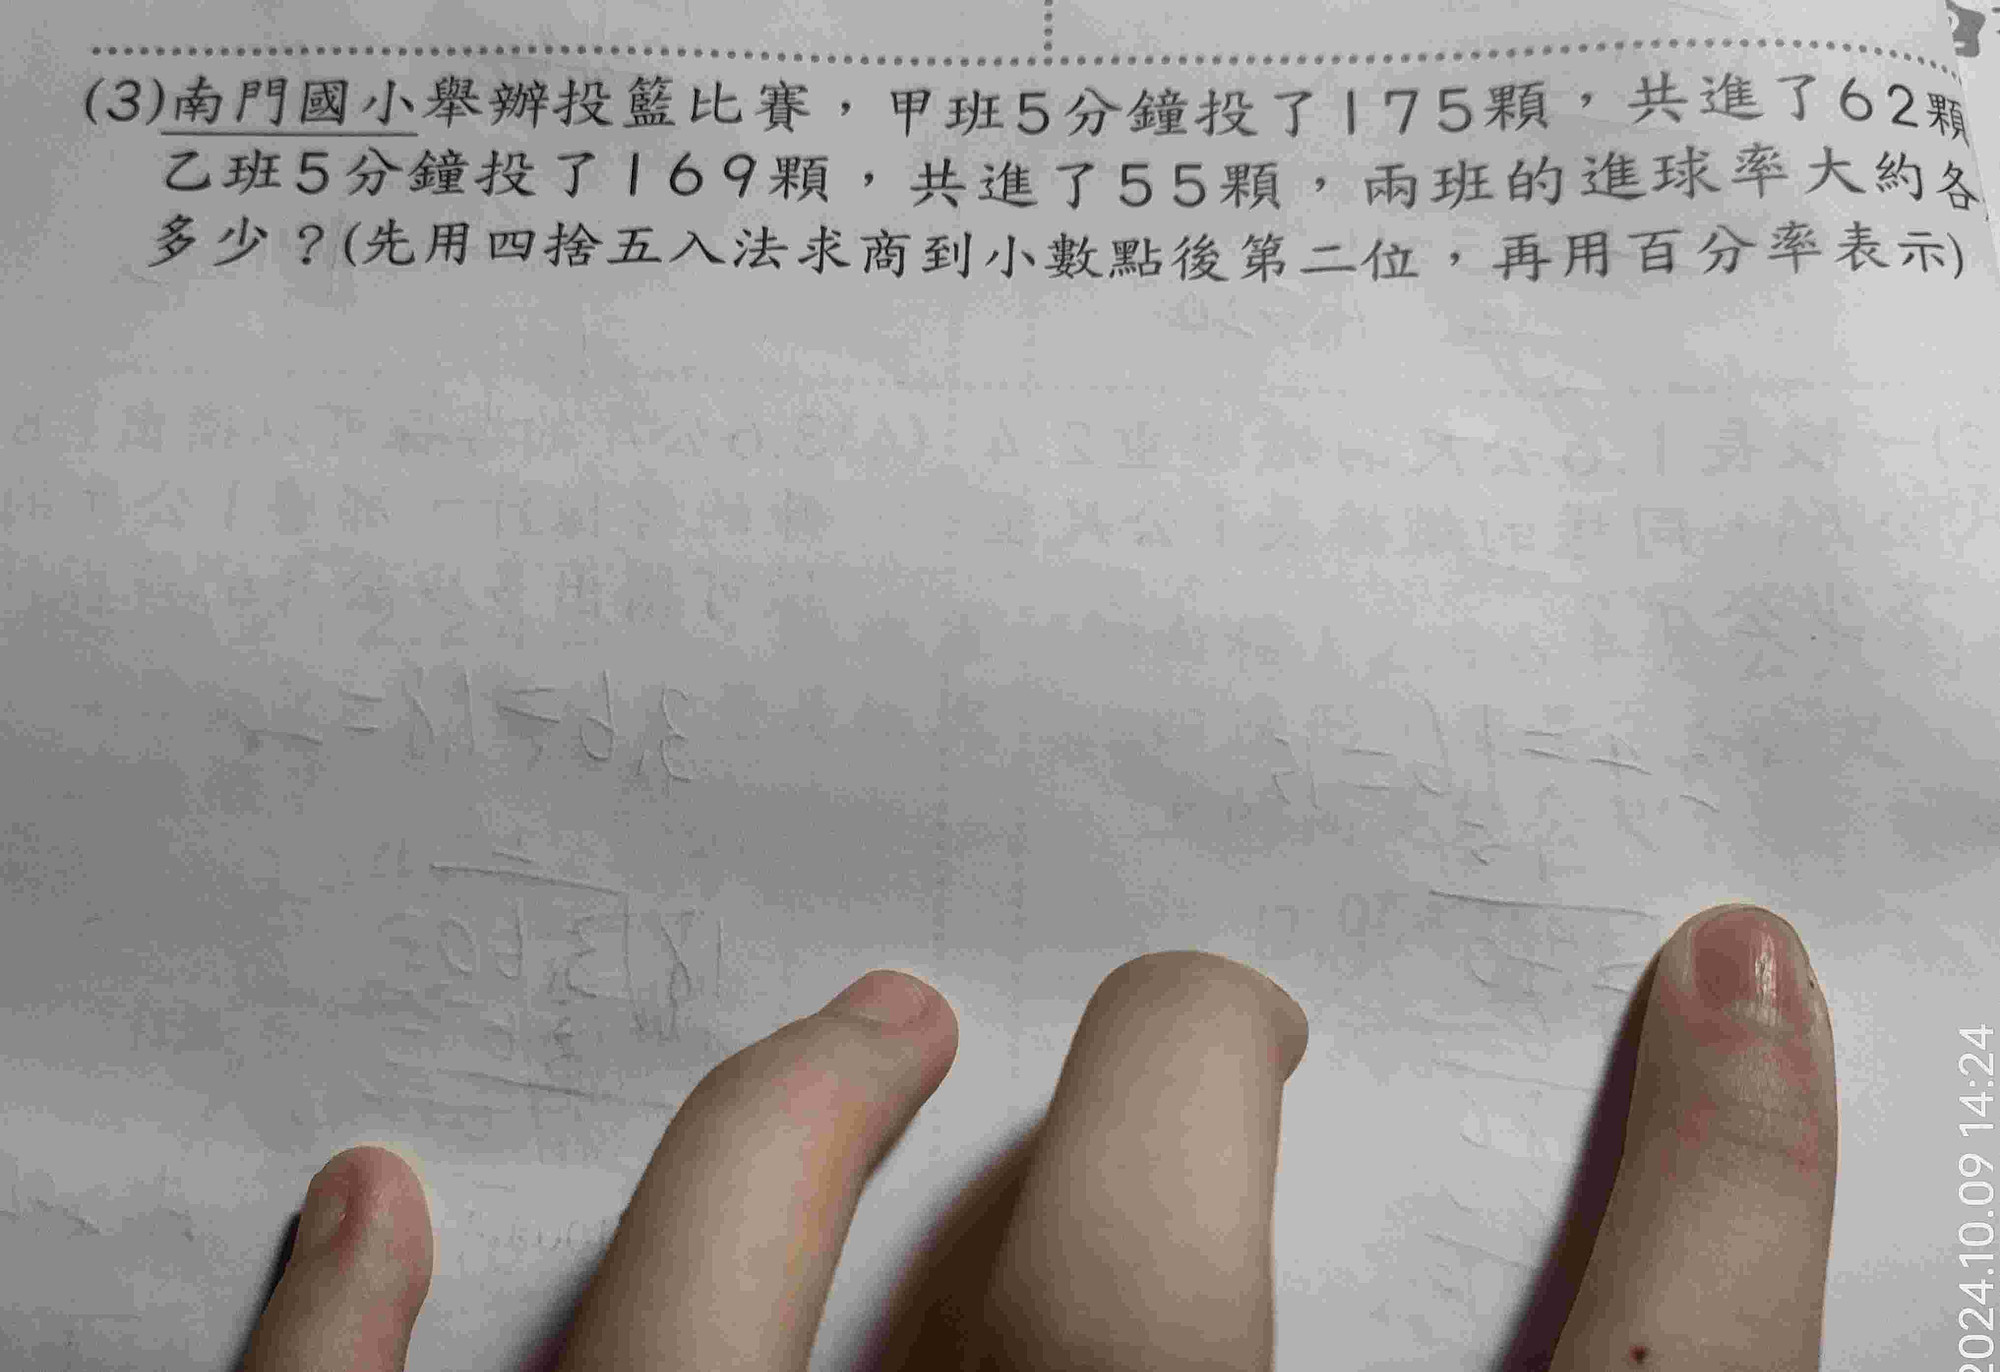 (3)南門國小舉辦投籃比賽，甲班5分鐘投了175顆，共進了62顆
乙班5分鐘投了169顆，共進了55顆，兩班的進球率大約各
多少？(先用四捨五入法求商到小數點後第二位，再用百分率表示)
2024.10.09 14:24